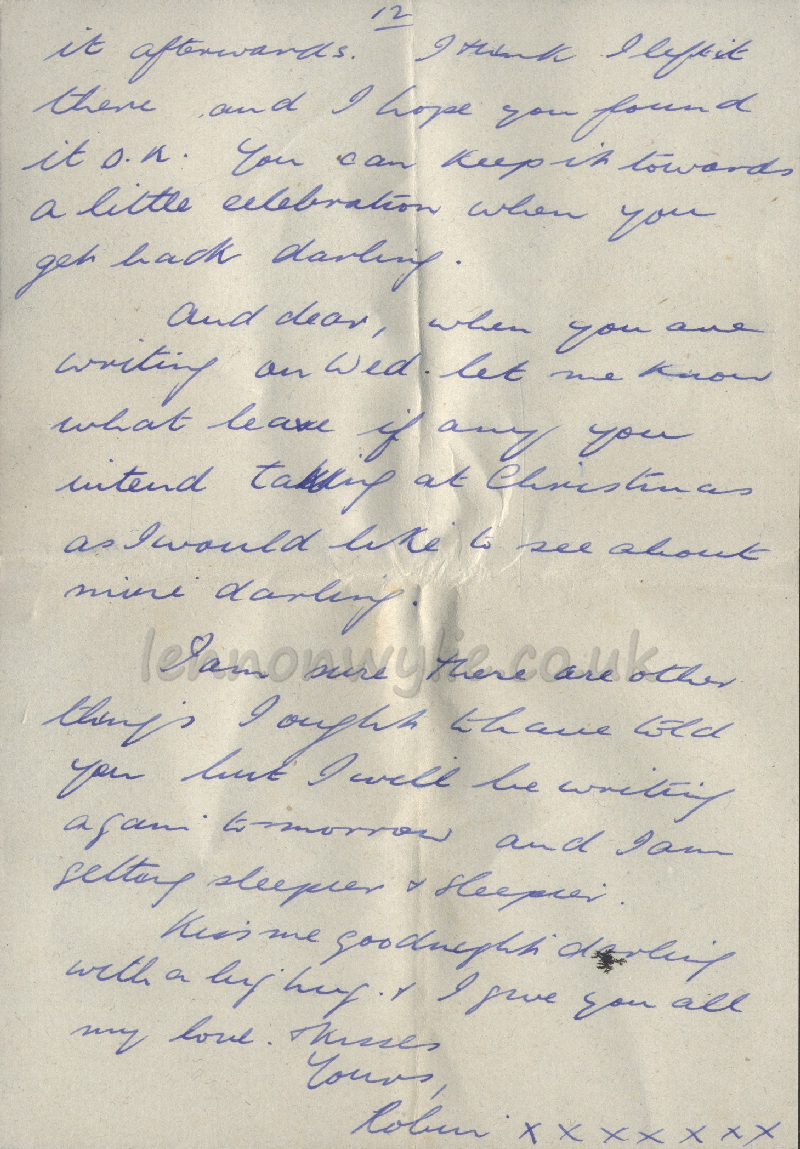 12
it afterwards. I think I left it
there and I hope you found
it O.K. You can keep it towards
a little celebration when you
get back darling.
And dear, when you are
writing on Wed. let me know
what leave if any you
intend taking at Christmas
as I would like to see about
mine darling.
lennonwylie.co.uk
I am sure there are other
things I ought to have told
you but I will be writing
again tomorrow and I am
getting sleepier & sleepier.
Kiss me goodnight darling
with a big hug. & I give you all
my love. & kisses
Yours,
Robin x x x x x x x